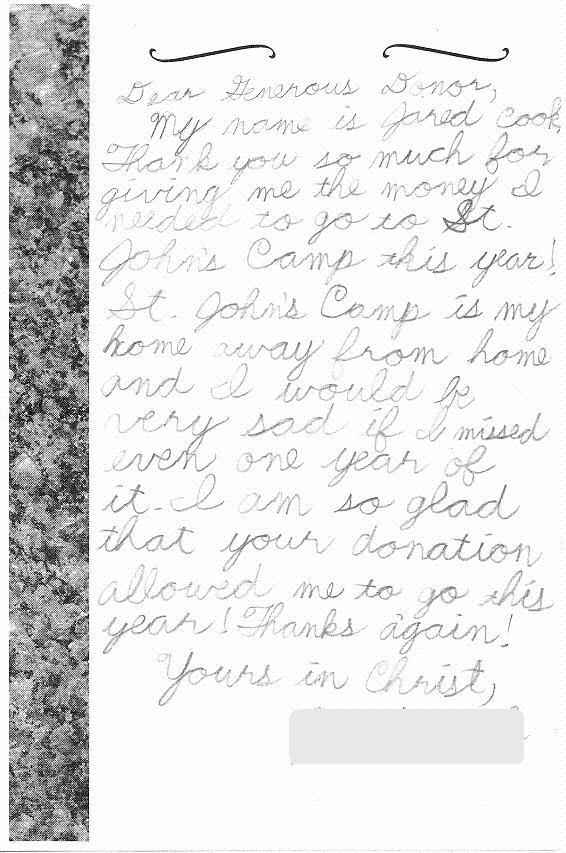 Dear Generous Donor,
My name is Jared Cook.
Thank you so much for
giving me the money I
needed to go to St.
John's Camp this year!
St. John's Camp is my
home away from home
and I would be
very sad if I missed
even one year of
it. I am so glad
that your donation
allowed me to go this
year! Thanks again!
Yours in Christ,